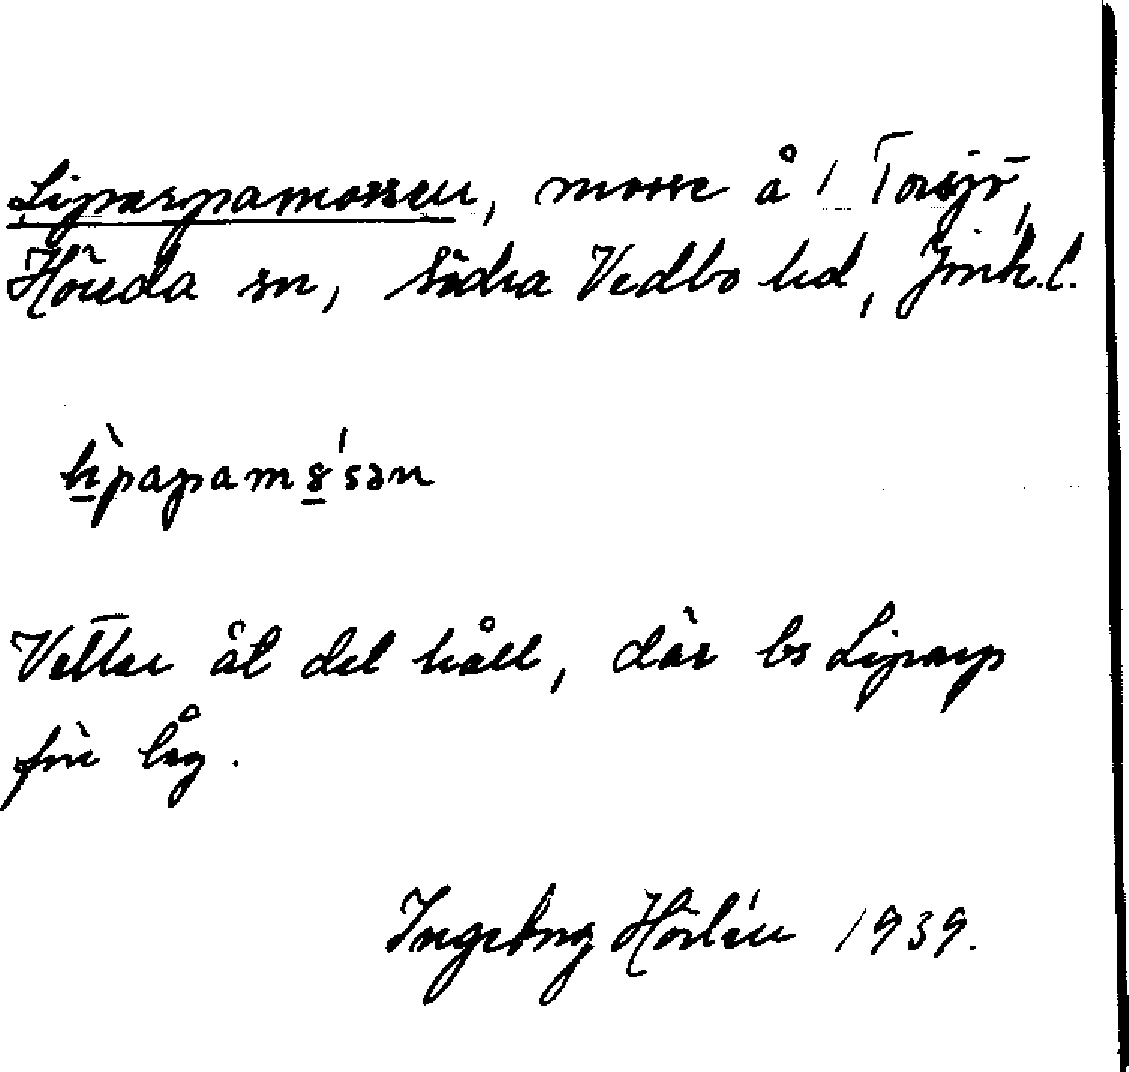 Liparpamossen, mosse å 1 Torsjö,
Höreda sn, Södra Vedbo hd, Jönk. l.
lìpapamɷ́sən
Vetter åt det håll, där bs Liparp
förr låg.
Ingeborg Hörlén 1939.